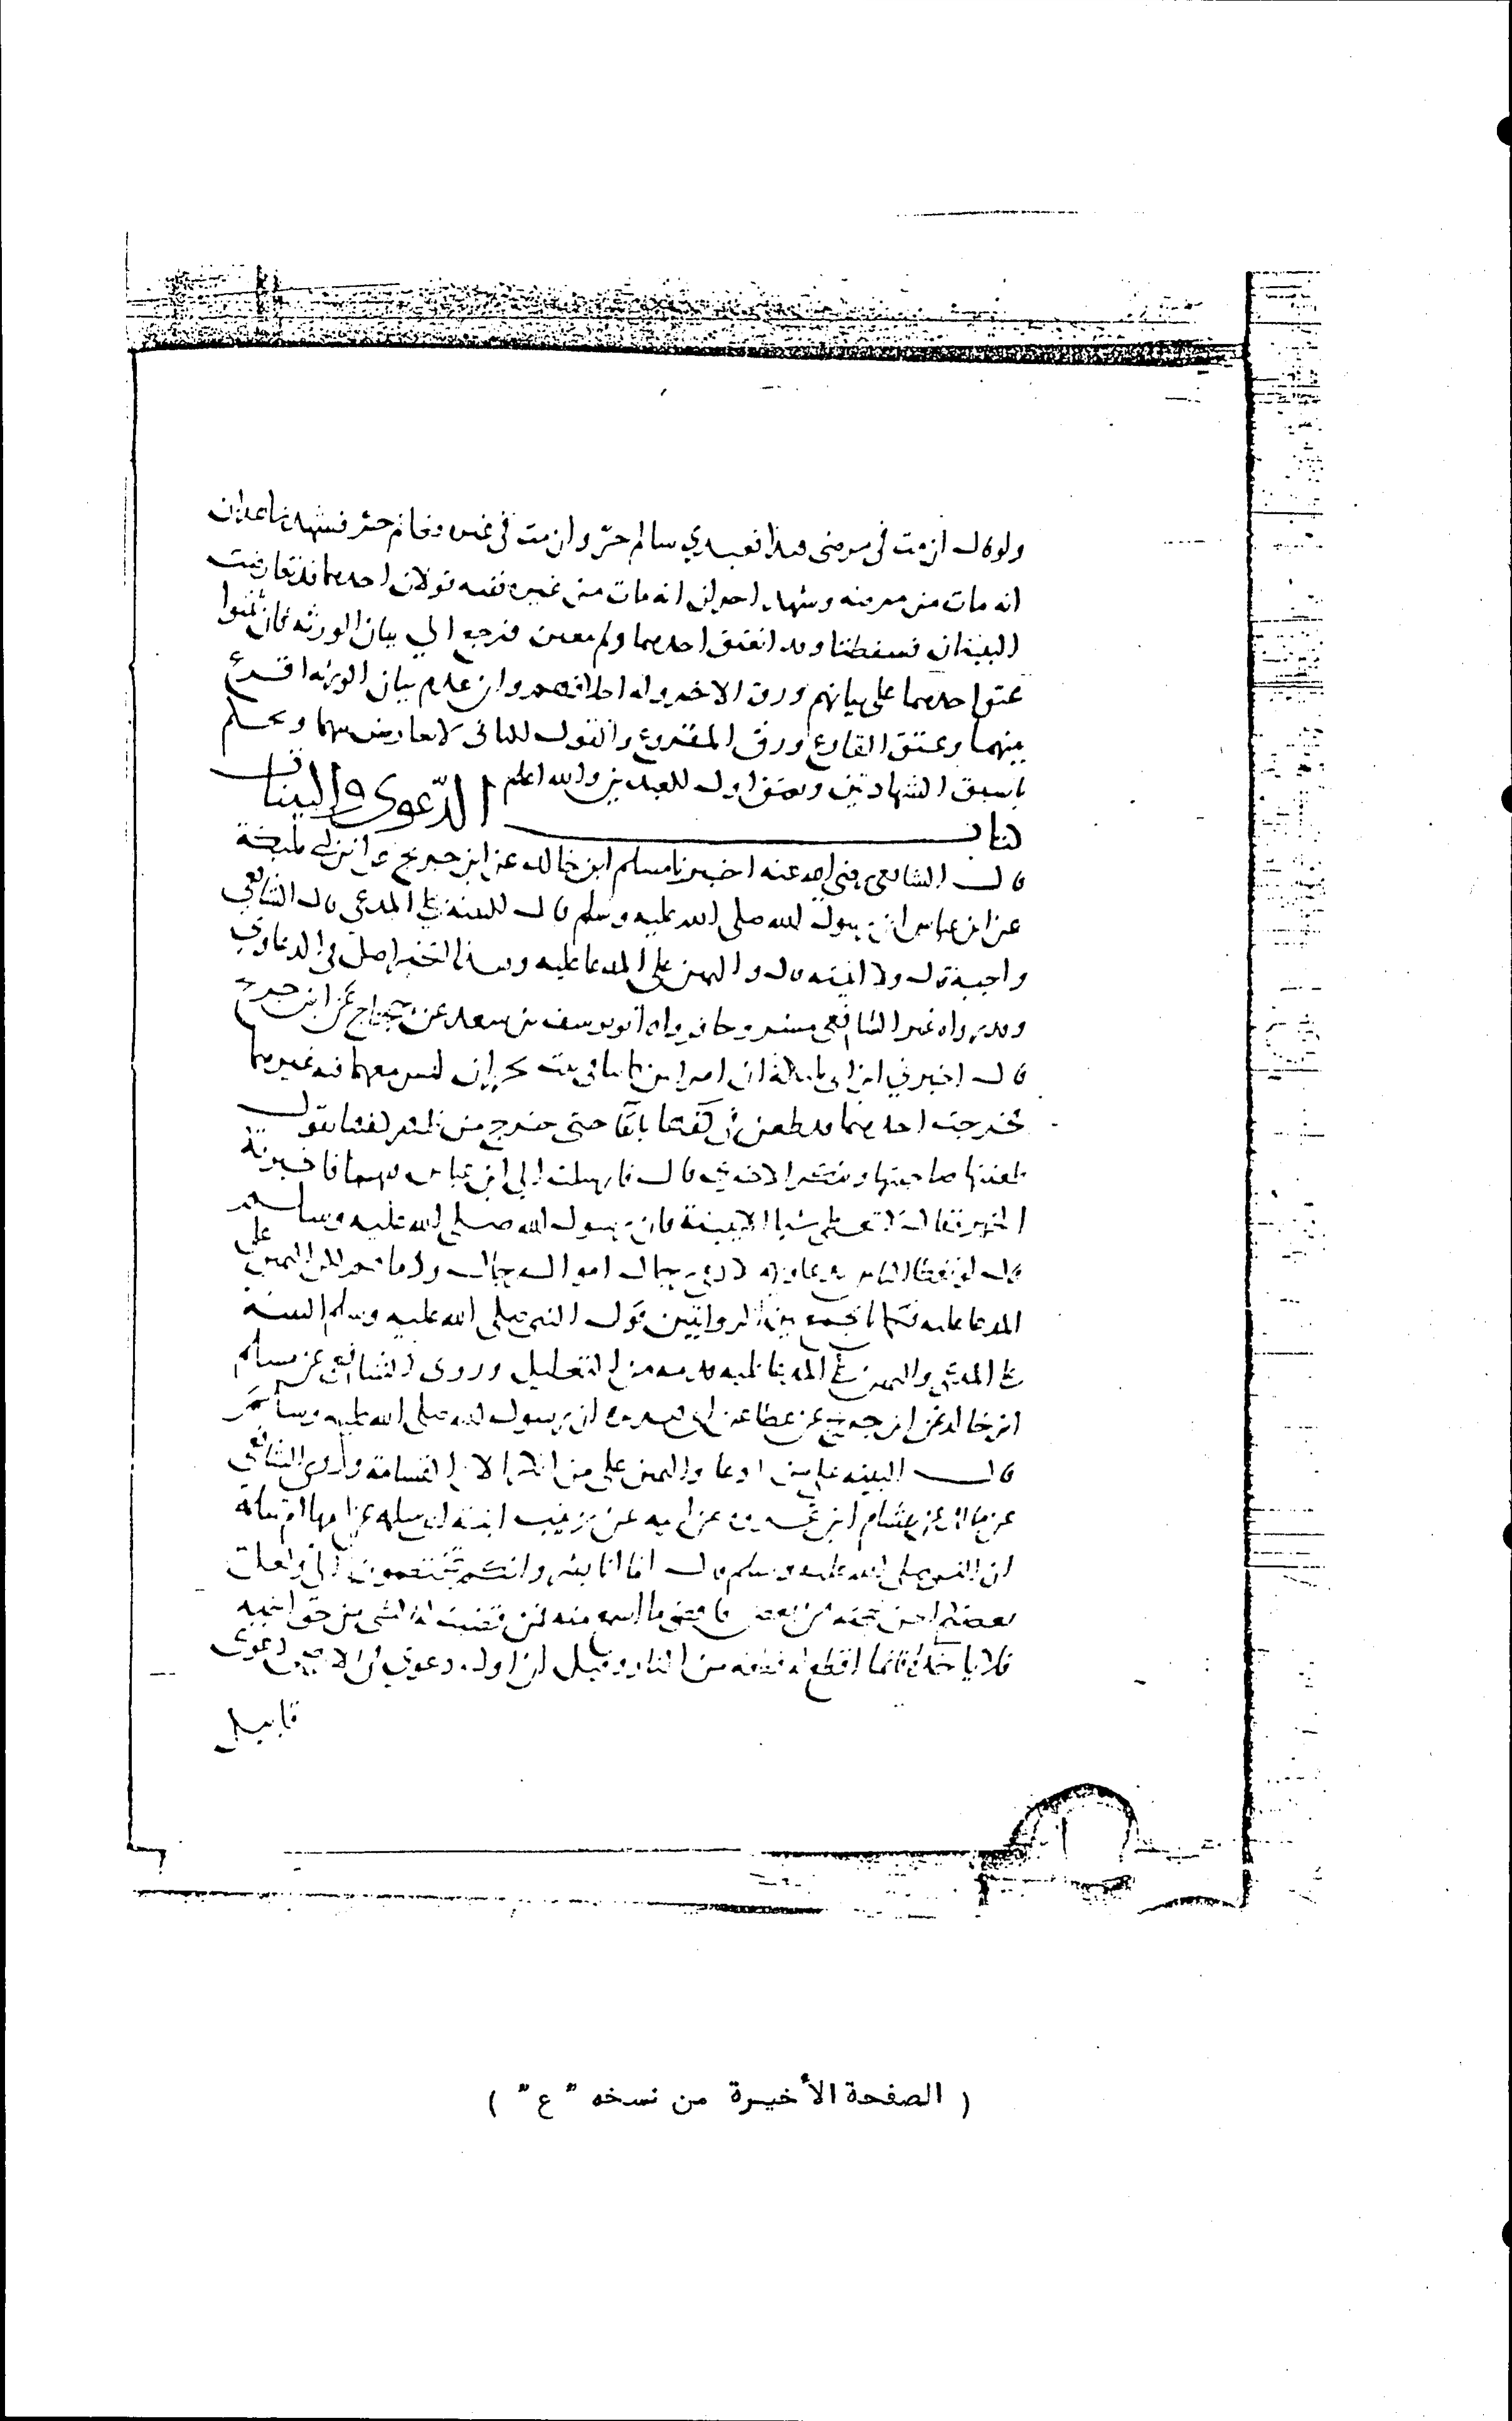 ولو قال ان مت في مرضى هذا فعبدي سالم حر وان مت في غيره فغانم حر فشهد شاهدان
انه مات من مرضه وشهد اخران انه مات من غيره ففيه قولان احدهما قد تعارضت
البينتان فسقطتا وقد انعتق احدهما ولم يعين فنرجع الي بيان الورثه فان بينوا
عتق احدهما على بيانهم ورق الاخر وله احلافهم وان عدم بيان الورثه اقرع
بينهما وعتق القارع ورق المقروع والقول الثاني لا تعارض بينهما ويحكم
باسبق الشهادتين وبعتق اول العبدين والله اعلم
كتاب الدّعوى والبينات
قال الشافعى رضي الله عنه اخبرنا مسلم ابن خالد عن ابن جريج عن ابن ابي مليكة
عن ابن عباس ان رسول الله صلى الله عليه وسلم قال البينة على المدعي قال الشافعي
واحسبه قال ولا اثبته قال واليمين على المدعا عليه وهذا الخبر اصل في الدعاوي
وقد رواه غير الشافعي مشروحا فرواه ابو يوسف بن سعيد عن حجاج عن ابن جريج
قال اخبرني ابن ابي مليكة ان امراتين كانتا في بيت تخرزان ليس معهما فيه غيرهما
فخرجت احديهما وقد طعن في كفها باشفا حتى خرج من ظهر كفها تقول
طعنتها صاحبتها وتنكر الاخرى قال فارسلت الي ابن عباس فيهما فاخبرته
الخبر فقال لا تعطي شيا الا ببينة فان رسول الله صلى الله عليه وسلم
قال لو يعطا الناس بدعاويهم لادعى رجال اموال رجال ودماهم لكن اليمين على
المدعا عليه فكان الجمع بين الروايتين قول النبي صلى الله عليه وسلم البينة
على المدعي واليمين على المدعا عليه وقدمه من التعليل وروى الشافعي عن مسلم
ابن خالد عن ابن جريج عن عطا عن ابي هريرة ان رسول الله صلى الله عليه وسلم
قال البينه على من ادعا واليمين على من انكر الا في القسامة وروى الشافعي
عن مالك عن هشام ابن عروه عن ابيه عن زينب ابنة ابي سلمه عن امها ام سلمة
ان النبي صلى الله عليه وسلم قال انما انا بشر وانكم تختصمون الي ولعل
بعضكم الحن بحجته من بعض فاقضي ما اسمع منه فمن قضيت له بشي من حق اخيه
فلا ياخذه فانما اقطع له قطعه من النار وقيل ان اول دعوي في الارض دعوى
قابيل
( الصفحة الأخيرة من نسخه " ع " )